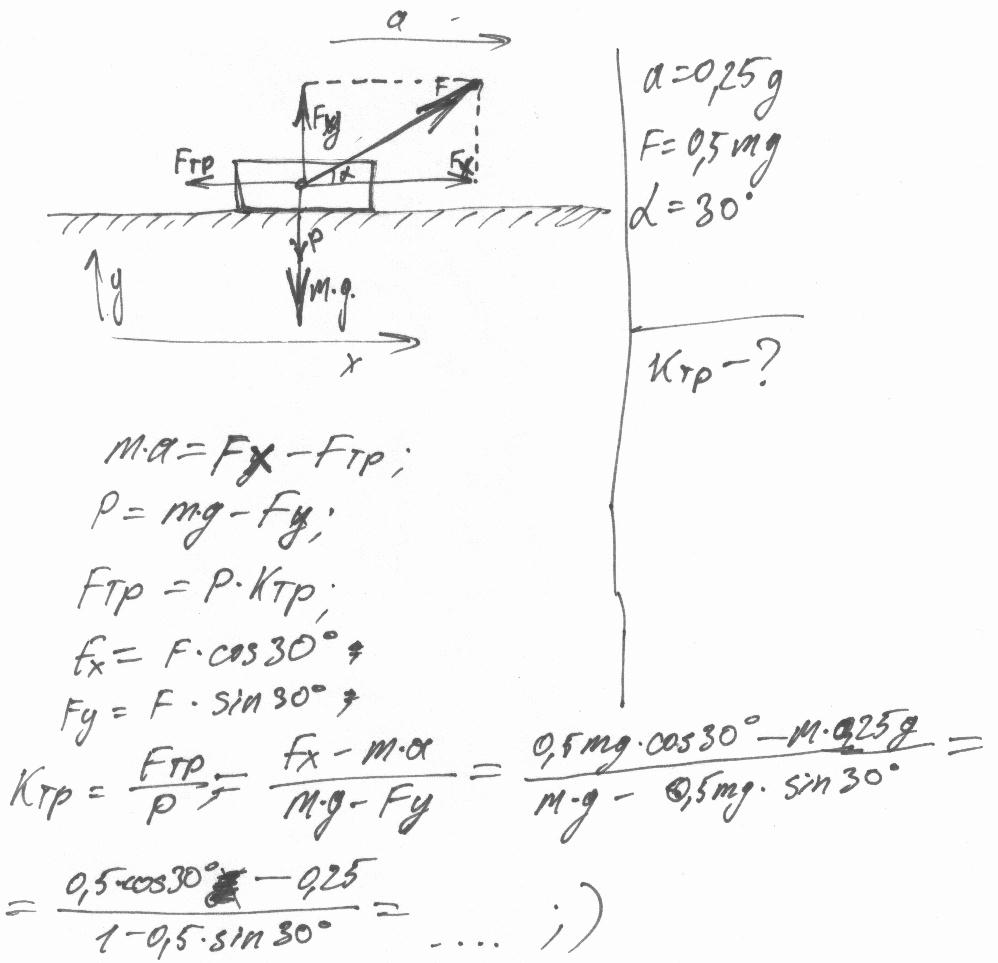 a
a=0,25g
F
Fy
F=0,5mg
Fтр
Fx
α
α=30°
P
m·g.
y
x
Kтр-?
m·a=Fx-Fтр;
P=m·g-Fy;
Fтр=P·Kтр;
Fx=F·cos30°;
Fy=F·sin30°;
Kтр=Fтр/P;=Fx-m·a/m·g-Fy=0,5mg·cos30°-m·0,25g/m·g-0,5mg·sin30°=
=0,5·cos30°-0,25/1-0,5·sin30°=....;)